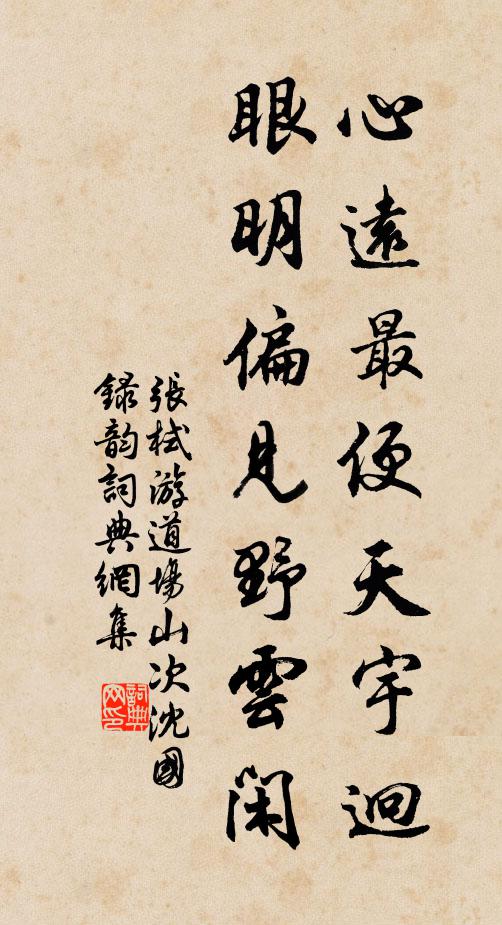 心遠最便天宇迥
眼明偏見野雲閑
張栻游道場山次沈國
録韵詞典網集
詞典
网印